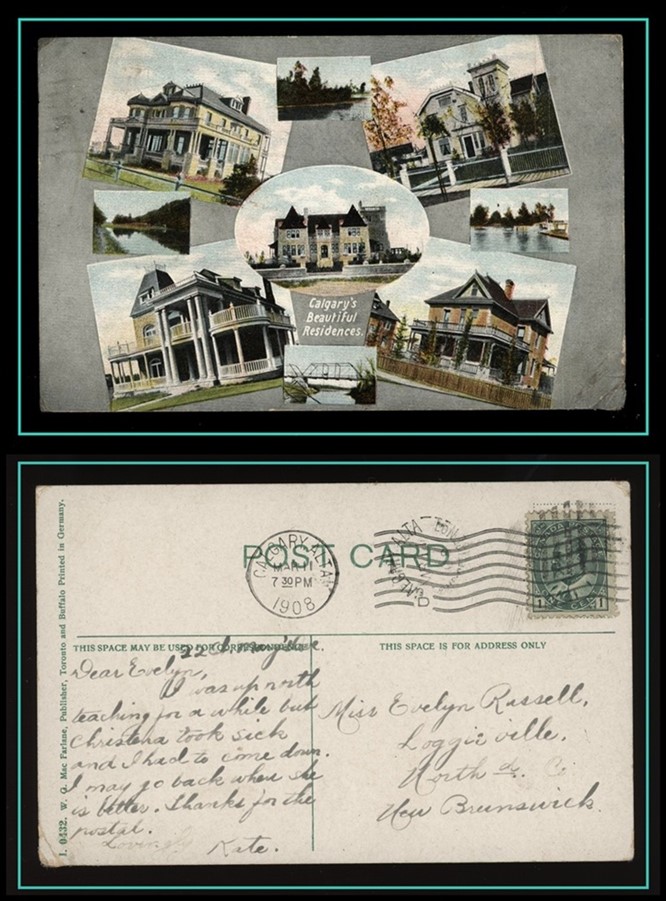 Calgary's
Beautiful
Residences.
I. 0432. W. G. Mac Farlane, Publisher, Toronto and Buffalo Printed in Germany.
POST CARD
CALGARY, ALTA
MAR 11
7 30 PM
1908
THIS SPACE MAY BE USED FOR
THIS SPACE IS FOR ADDRESS ONLY
Dear Evelyn,
I was up north
teaching for a while but
Christena took sick
and I had to come down.
I may go back when she
is better. Thanks for the
postal.
Lovingly
Kate.
Miss Evelyn Russell,
Loggieville,
North'd. Co
New Brunswick.